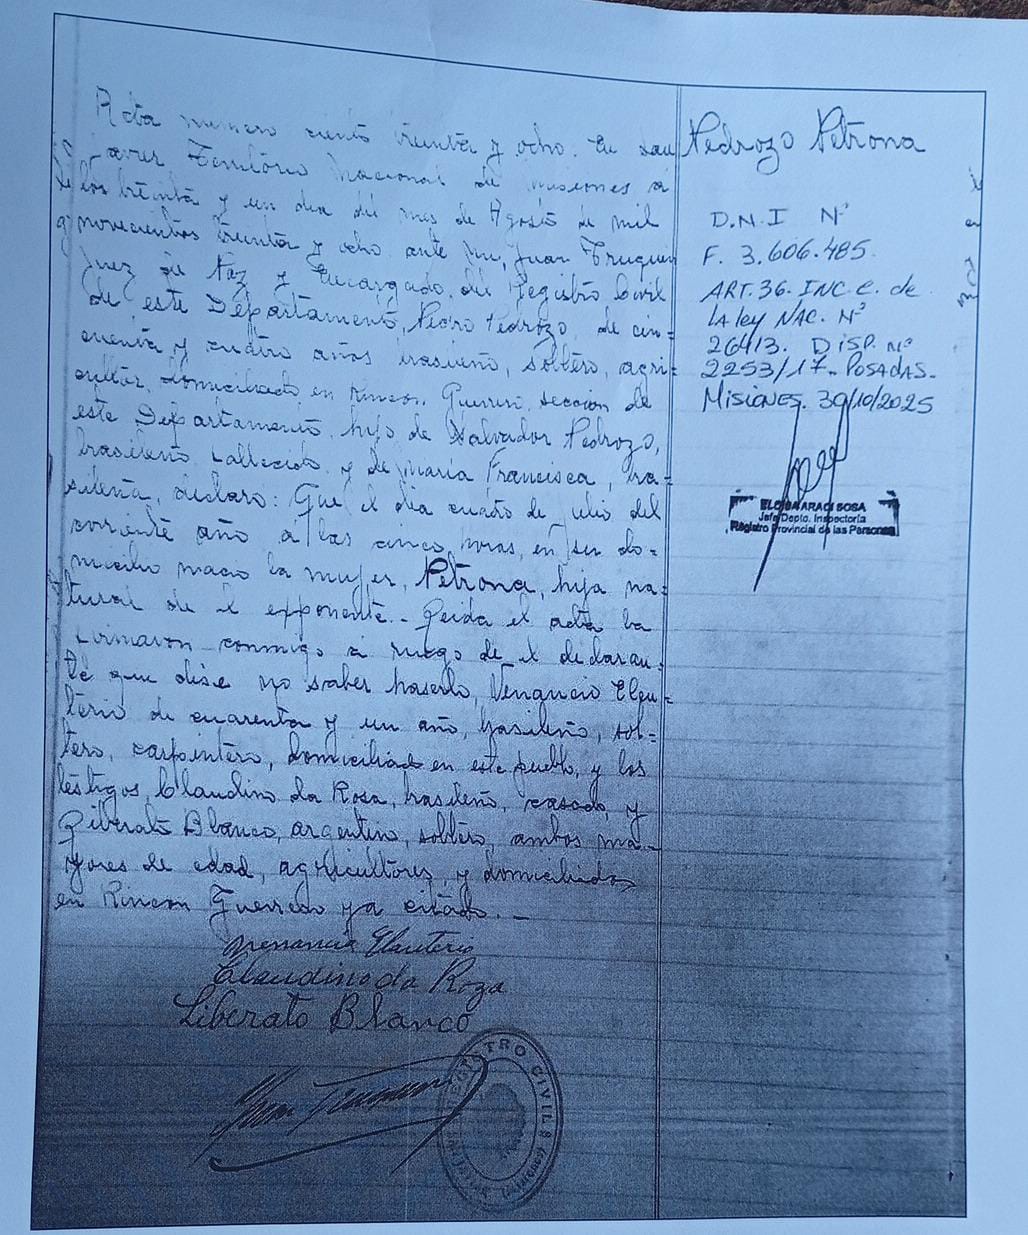 Acta numero ciento treinta y ocho. En San
Javier Território Nacional de Misiones a
los treinta y un dia del mes de Agosto de mil
novecientos treinta y ocho ante mi, Juan
Juez de Paz y Encargado del Registro Civil
de este Departamento, Pedro Pedrozo, de cin=
cuenta y cuatro años brasileño, soltero, agri=
cultor, domiciliado en Rincon sección de
este Departamento, hijo de Salvador Pedrozo,
brasileño fallecido y de Maria Francisca, bra=
sileña, declaro: Que el dia cuatro de julio del
corriente año a las cinco horas, en su do=
micilio nacio la mujer, Petrona, hija na=
tural de el exponente.- Leida el acta la
firmaron conmigo a ruego de el declaran=
te que dise no saber haserlo, Venancio Eleu=
terio de cuarenta y un año, brasileño, sol=
tero, carpintero, domiciliado en este pueblo, y los
testigos, Claudino da Rosa, brasileño, casado, y
Liberato Blanco, argentino, soltero, ambos ma=
yores de edad, agricultores, y domiciliados
en Rincon ya citado.-
Venancio Elauterio
Claudino da Roza
Liberato Blanco
REGISTRO CIVIL
(Misiones)
Pedrozo Petrona
D.N.I Nº
F. 3.606.485.
ART. 36. INC. C. de
LA ley NAC. Nº
26413. DISP. Nº
2253/17- POSADAS-
MISIONES. 30/10/2025
ELOISA ARACI SOSA
Jefa Depto. Inspectoría
Registro Provincial de las Personas